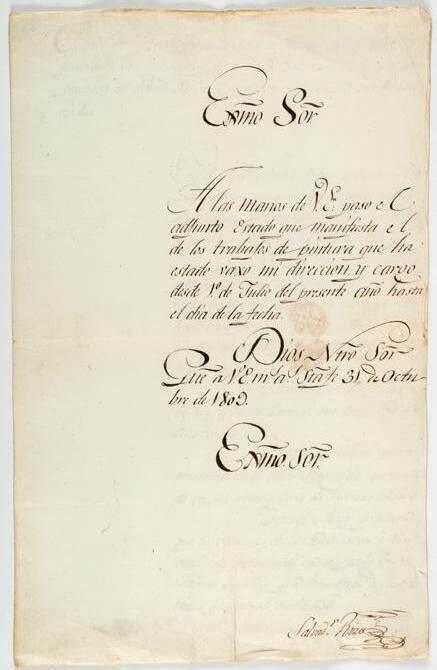 Exmo Sor
A las manos de V.E. paso el
adjunto Estado que manifiesta el
de los trabajos de pintura que ha
estado vaxo mi direccion y cargo
desde 1º de Julio del presente año hasta
el dia de la fecha.
Dios Ntro Sor
Gue a V.E. ms. as. Stafe 31, de Octu-
bre de 1809.
Exmo. Sor.
Salvad.r Rizo